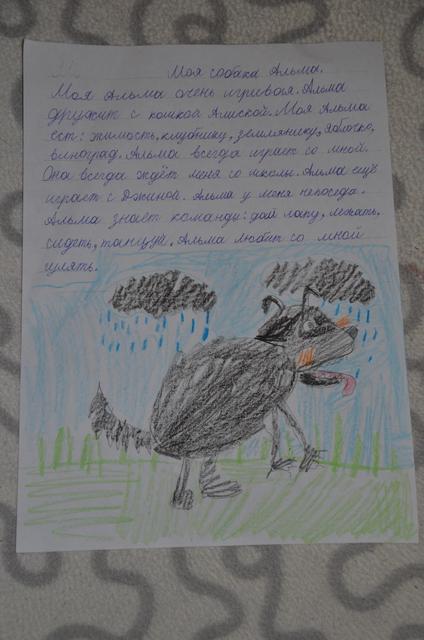 Моя собака Альма.
Моя Альма очень игривая. Альма
дружит с кошкой Алиской. Моя Альма
ест: жимолость, клубнику, землянику, яблочко,
виноград. Альма всегда играет со мной.
Она всегда ждёт меня со школы. Альма ещё
играет с Джиной. Альма у меня непоседа.
Альма знает команду: дай лапу, лежать,
сидеть, танцуй. Альма любит со мной
гулять.